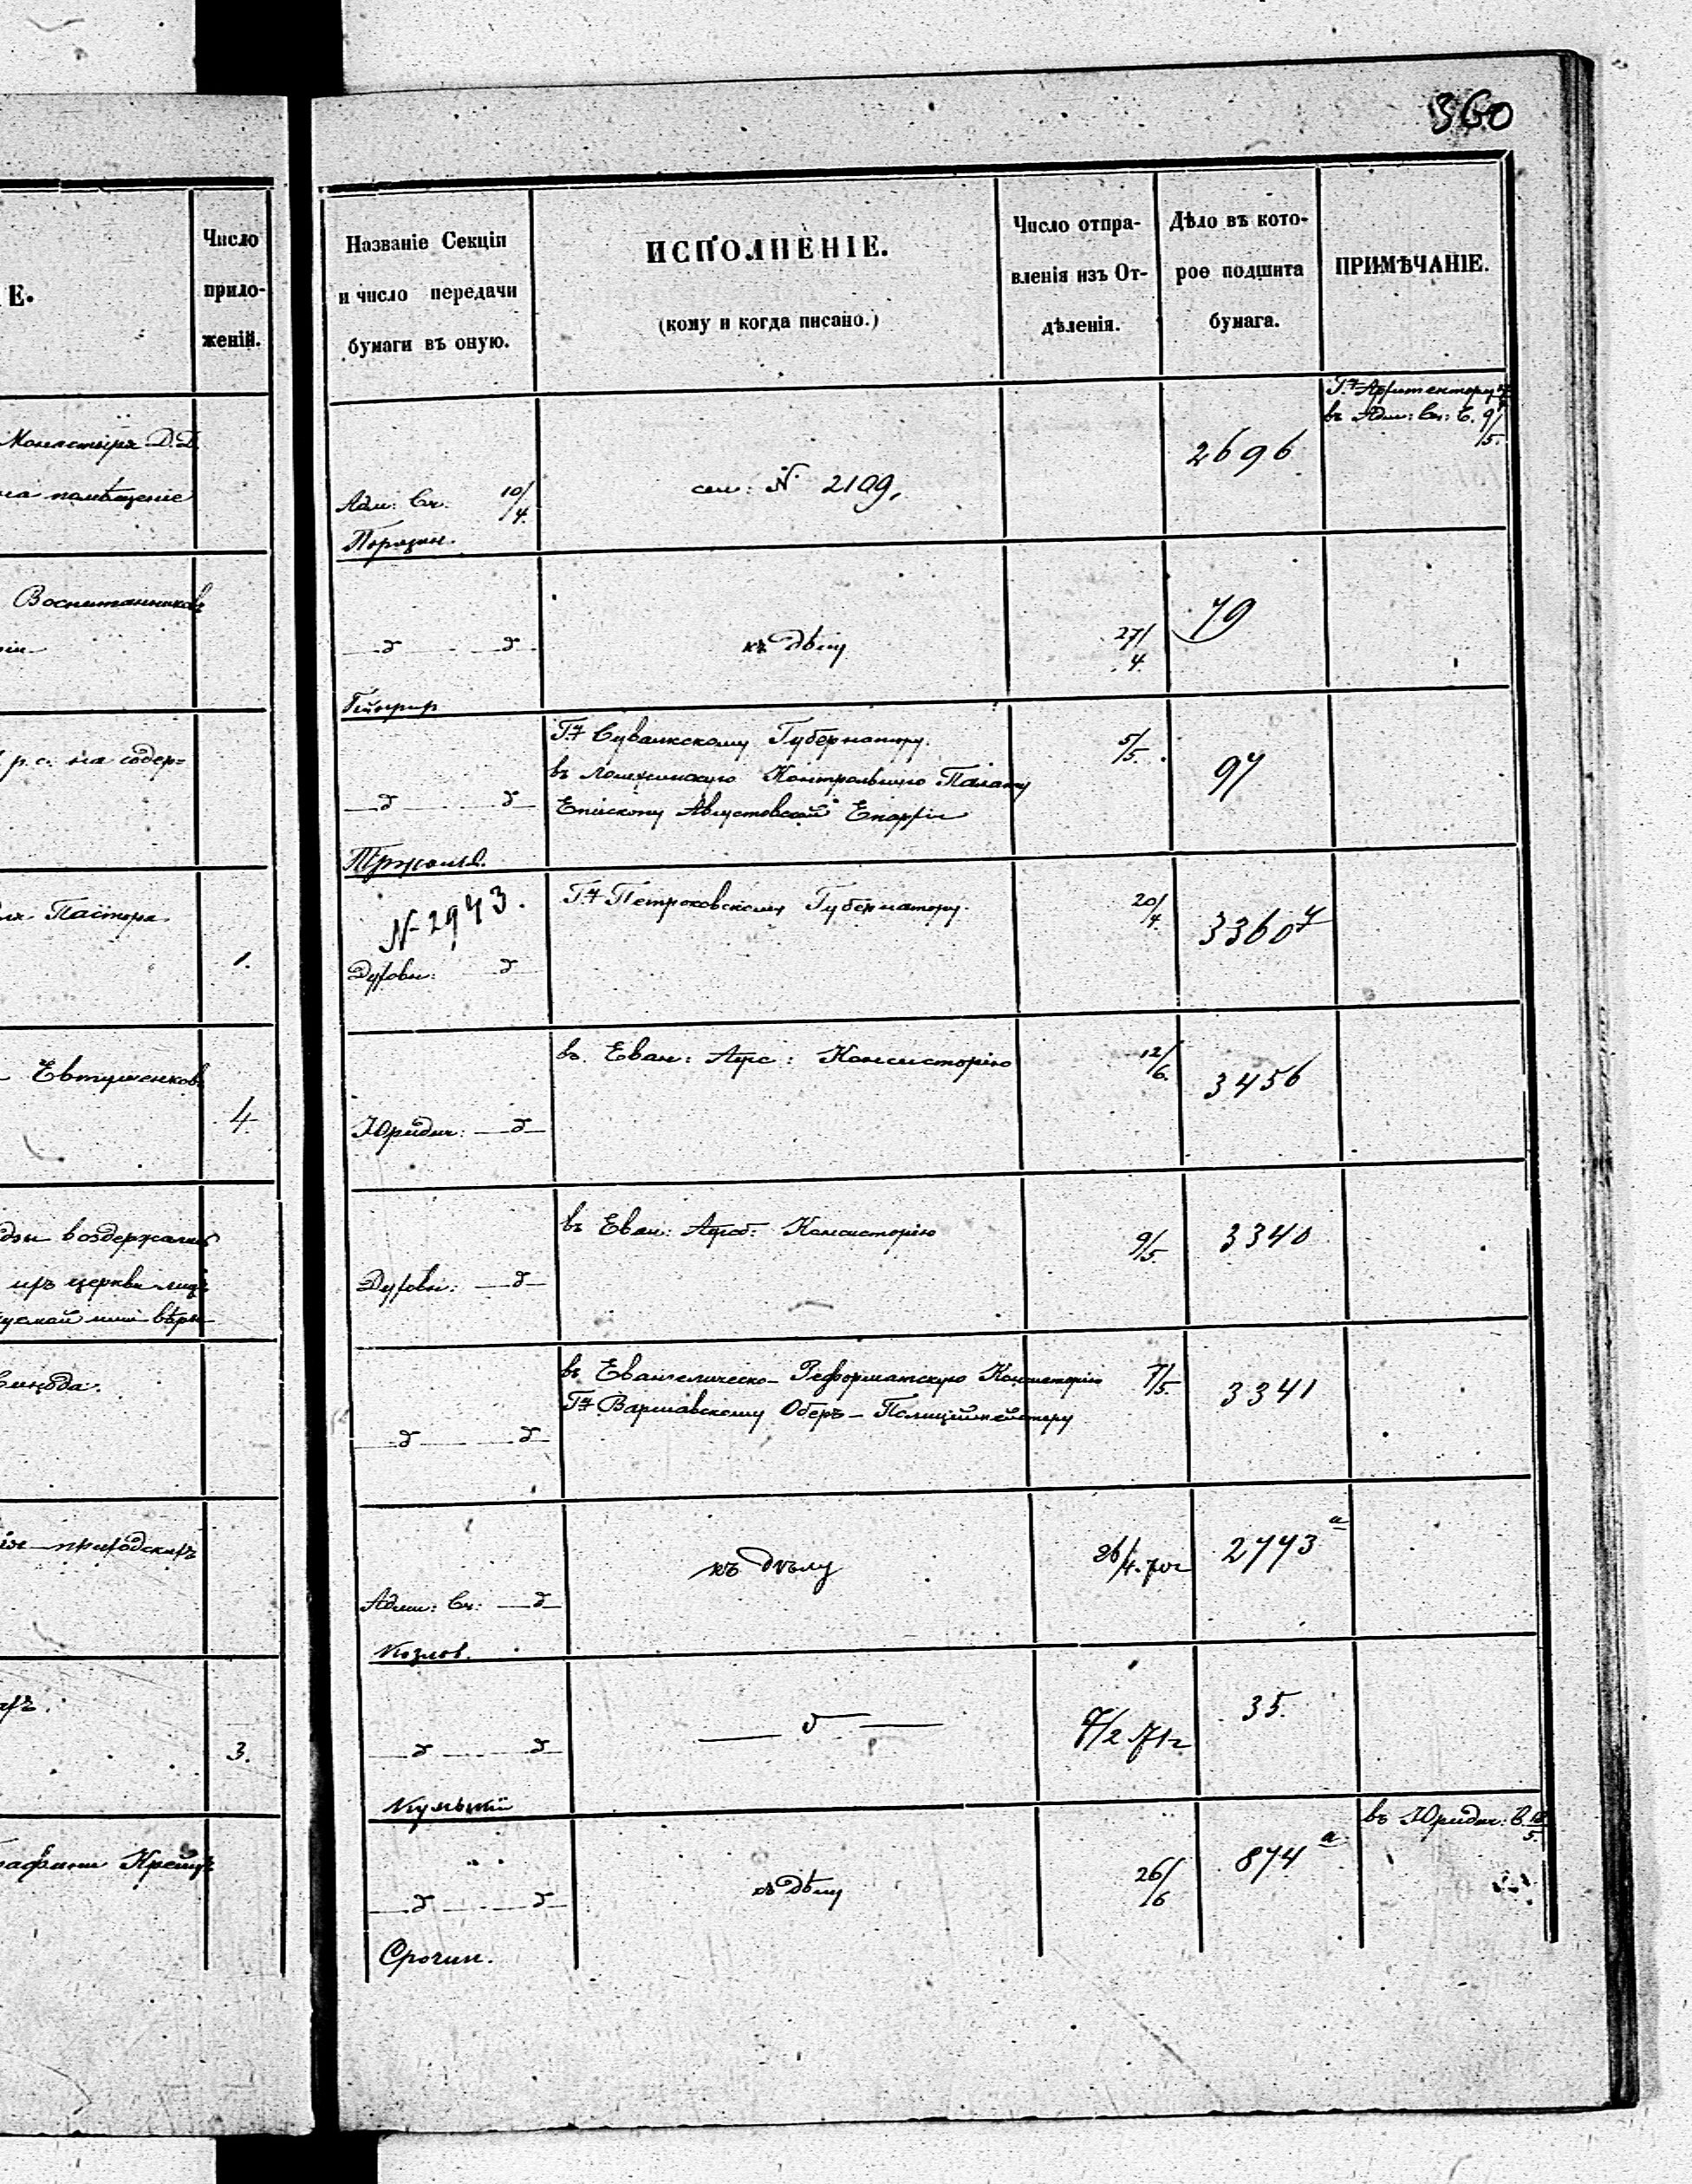 360
Е.
Число
прило-
женій.
Монастыря Д.Д.
на помѣщеніе
Воспитанниковъ
р. с. на содер=
Пастора.
1.
Евтушенковъ
4.
воздержаніи
церкви лицъ
вѣры
Синода.
приходскихъ
3.
Названіе Секціи
и число передачи
бумаги въ оную.
ИСПОЛНЕНІЕ.
(кому и когда писано.)
Число отпра-
вленія изъ От-
дѣленія.
Дѣло въ кото-
рое подшита
бумага.
ПРИМѢЧАНІЕ.
Адм: Сч. 10/4.
см: № 2109,
2696
Гну Архитектору
въ Адм: Сч: С. 9/5.
д д
къ дѣлу
27/4.
79
д д
Гну Сувалкскому Губернатору.
въ Ломжинскую Контрольную Палату
Епископу Августовской Епархіи
5/5.
97
№ 2943.
Духовн: д
Гну Петроковскому Губернатору.
20/4.
3360
Юридич: д
въ Еван: Аугс: Консисторію
12/6.
3456
Духовн: д
въ Еван: Аугсб: Консисторію
9/5.
3340
д д
въ Евангелическо-Реформатскую Консисторію
Гну Варшавскому Оберъ-Полиціймейстеру
7/5.
3341
Адми: Сч: д
Козлов.
къ дѣлу
26/4. 70г
2773 а
д д
д
7/2 71г
35.
д д
Срочин.
къ дѣлу
26/6
874 а
въ Юридич: С.